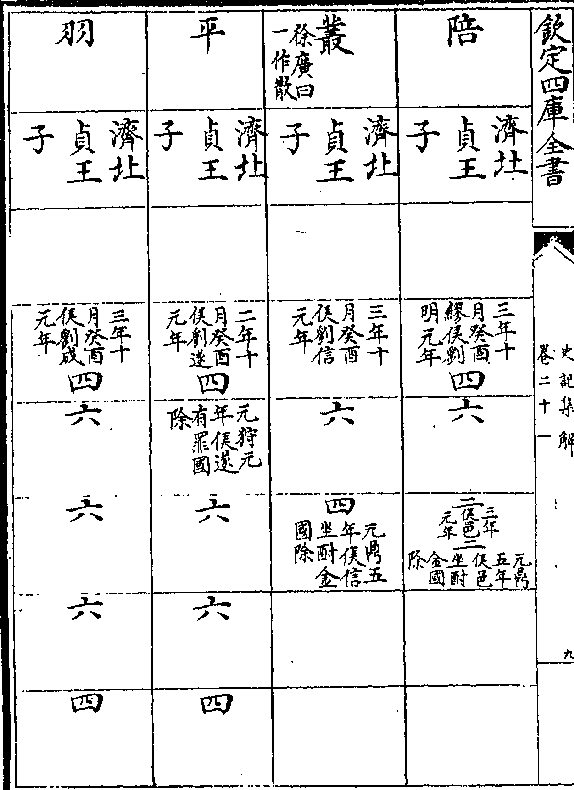 欽定四庫全書
史記集解
卷二十一
九
陪
濟北
貞王
子
三年十
月癸酉
繆侯劉
明元年
四
六
二
三年
侯邑
元年
二
元鼎
五年
侯邑
坐酎
金國
除
叢
徐廣曰
一作散
濟北
貞王
子
三年十
月癸酉
侯劉信
元年
六
四
元鼎五
年侯信
坐酎金
國除
平
濟北
貞王
子
二年十
月癸酉
侯劉遂
元年
四
元狩元
年侯遂
有罪國
除
六
六
四
羽
濟北
貞王
子
三年十
月癸酉
侯劉成
元年
四
六
六
六
四